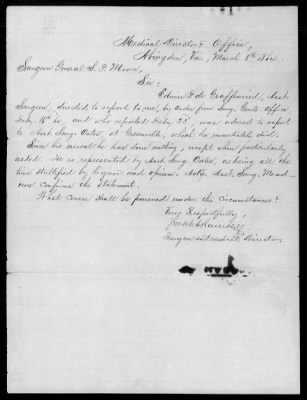 Medical Director's Office,
Abingdon, Va., March 8th 1864
Surgeon General S. P. Moore,
Sir:
Edwin F. De Graffenried, Asst.
Surgeon, directed to report to me, by order from Surg. Genls Office,
Feby 16th, and who reported Feby 23d, was ordered to report
to Asst. Surg. Oates, at Greenville, which he immediately did.
Since his arrival he has done nothing, except when particularly
asked. He is represented by Asst. Surg. Oates, as being all the
time stultified by liquor and opium. Actg. Asst. Surg.
confirms the statement.
What course shall be pursued under the circumstances?
Very Respectfully,
Surgeon and Medical Director